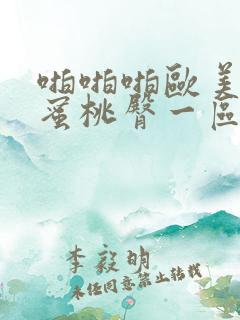 啪啪啪歐美
蜜桃臀一區
李毅明
未经同意禁止转载